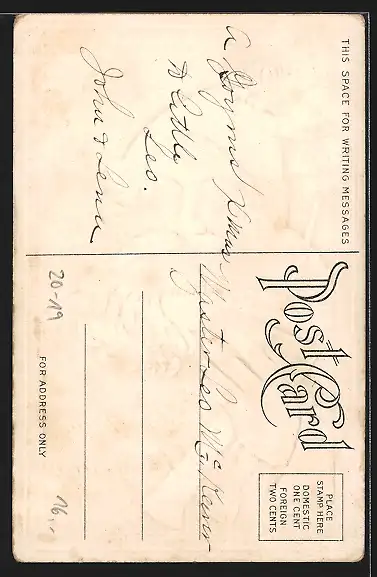 THIS SPACE FOR WRITING MESSAGES
A Joyous Xmas
to Little
Leo.
John & Lena
Post Card
PLACE
STAMP HERE
DOMESTIC
ONE CENT
FOREIGN
TWO CENTS
Master Leo
FOR ADDRESS ONLY
20-19
16.-